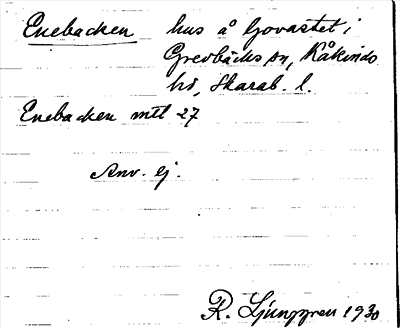 Enebacken hus å Govastet i
Grevbäcks sn, Kåkinds
hd, Skarab. l.
Enebacken mtl 27
Anv. ej.
R. Ljunggren 1930